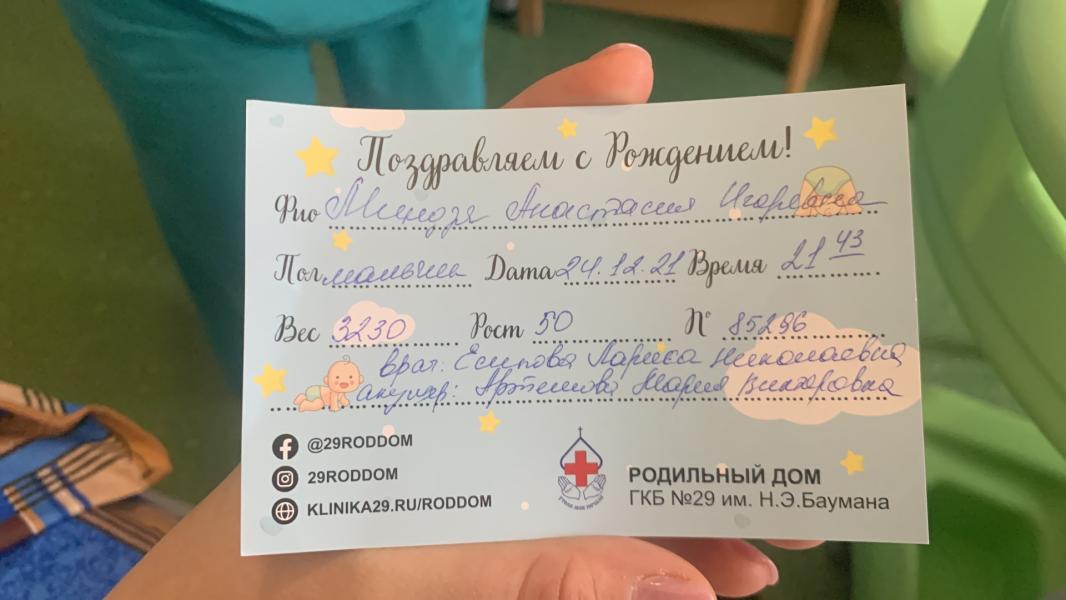 Поздравляем с Рождением!
Фио Миндзя Анастасия Игоревна
Пол мальчик Дата 24.12.21 Время 21 43
Вес 3230 Рост 50 № 85296
врач: Есипова Лариса Николаевна
акушер: Артемова Мария Викторовна
@29RODDOM
29RODDOM
KLINIKA29.RU/RODDOM
РОДИЛЬНЫЙ ДОМ
ГКБ №29 им. Н.Э.Баумана